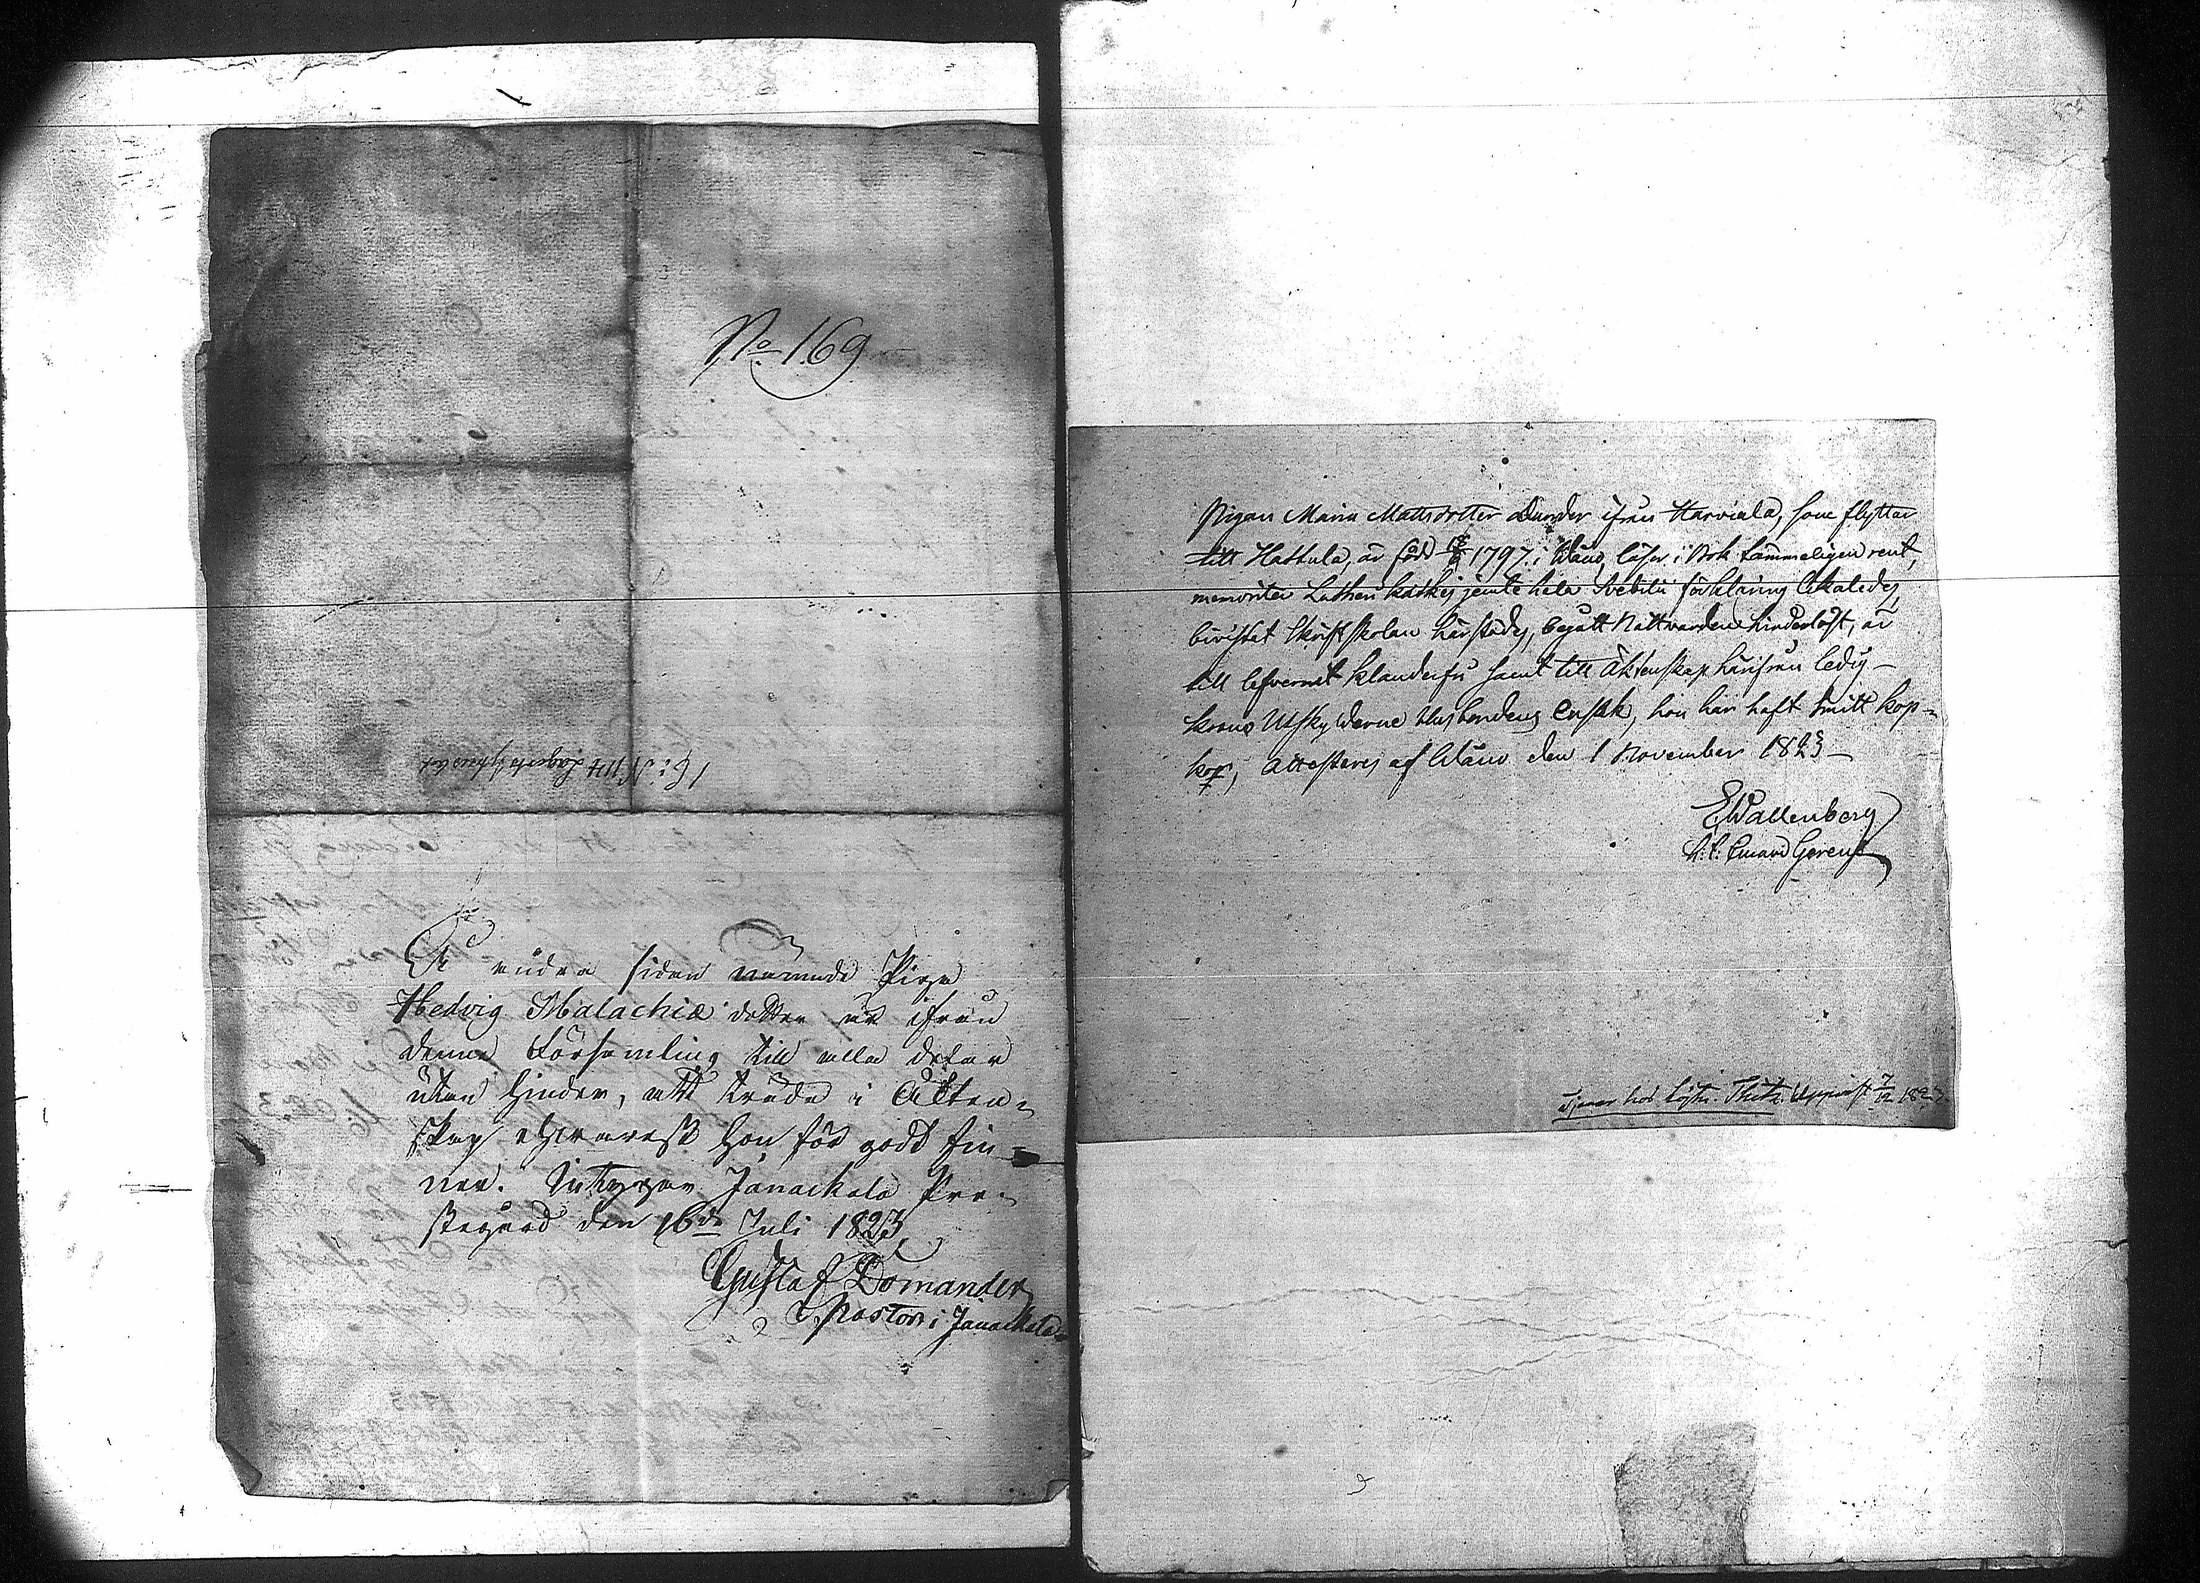 No 169
På andra sidan nämnde Piga
Hedvig Malachiæ dotter är ifrån
denna Församling till alla delar
utan hinder, att träda i Äkten=
skap ehvarest hon för godt fin=
ner. Intygar Janackala Pre=
stegård den 16de Juli 1823
Gustaf Domander
Pastor i Janackala
Pigan Maria Mattsdotter ifrån Harviala, som flyttar
till Hattula, är född 1797 i Wånå, läser i Bok tämmeligen rent,
memoriter Lutheri kateches jemte hela Svebilii förklaring likaledes,
bivistat Skriftskolan härstädes, begått Nattvarden hinderlöst, är
till lefvernet klanderfri samt till Äktenskap härifrån ledig —
krono Utskylderne Husbondens ensak, hon har haft smitt kop=
kop, Attesteras af Wånå den 1 November 1823 —
E Wallenberg